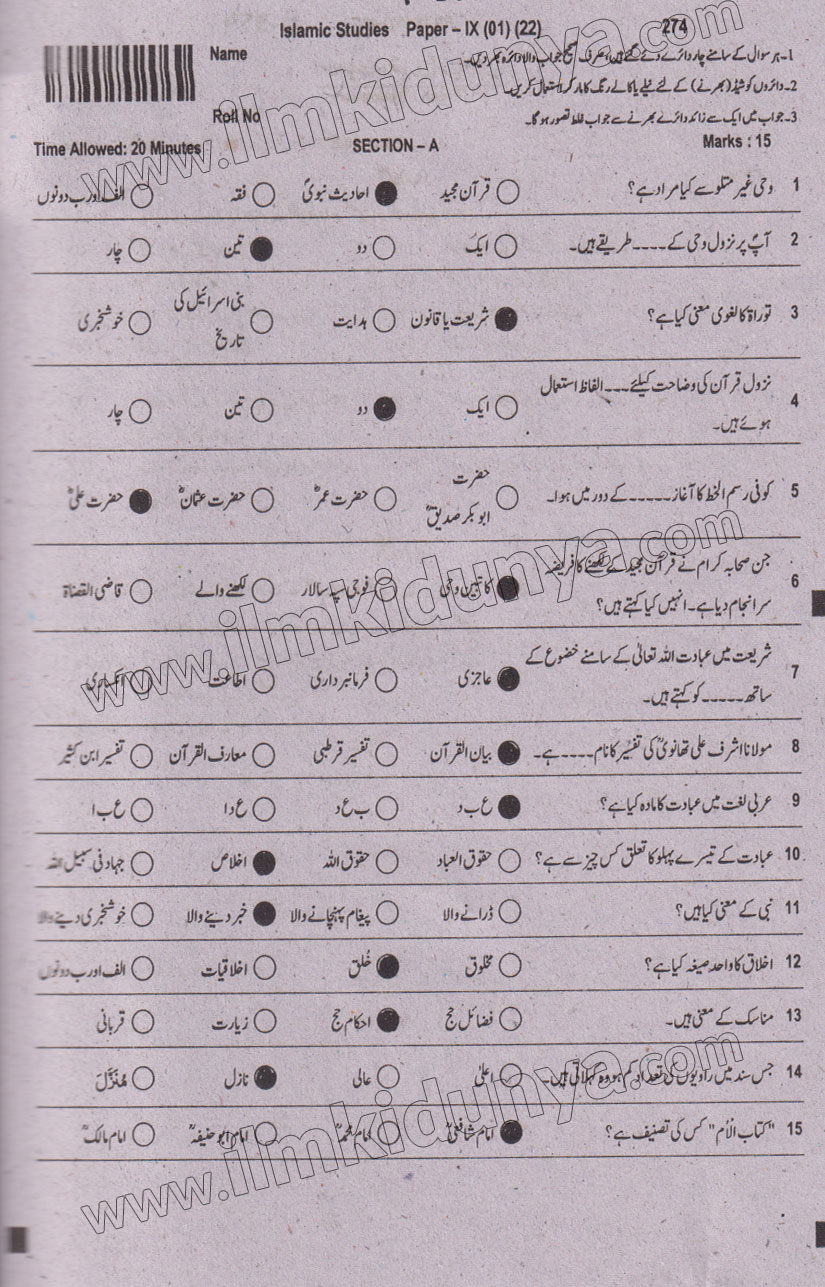 Islamic Studies Paper – IX (01) (22) 274
Name
1۔ہر سوال کے سامنے چار دائرے دئے گئے ہیں، صرف صحیح جواب والا دائرہ بھر دیں۔
2۔دائروں کو شیڈ (بھرنے) کے لئے نیلے یا کالے رنگ کا مارکر استعمال کریں۔
Roll No
3۔جواب میں ایک سے زائد دائرے بھرنے سے جواب غلط تصور ہوگا۔
Time Allowed: 20 Minutes SECTION – A Marks : 15
1 وحی غیر متلو سے کیا مراد ہے؟ قرآن مجید احادیث نبویؐ فقہ الف اور ب دونوں
2 آپؐ پر نزول وحی کے ۔۔۔۔ طریقے ہیں۔ ایک دو تین چار
3 توراۃ کا لغوی معنی کیا ہے؟ شریعت یا قانون ہدایت بنی اسرائیل کی تاریخ خوشخبری
4 نزول قرآن کی وضاحت کیلئے ۔۔۔ الفاظ استعمال
ہوئے ہیں۔ ایک دو تین چار
5 کوفی رسم الخط کا آغاز ۔۔۔۔۔ کے دور میں ہوا۔ حضرت ابو بکر صدیقؓ حضرت عمرؓ حضرت عثمانؓ حضرت علیؓ
6 جن صحابہ کرام نے قرآن مجید کے لکھنے کا فریضہ
سرانجام دیا ہے۔ انہیں کیا کہتے ہیں؟ کاتبین وحی فوجی سپہ سالار لکھنے والے قاضی القضاۃ
7 شریعت میں عبادت اللہ تعالیٰ کے سامنے خضوع کے
ساتھ ۔۔۔۔۔ کو کہتے ہیں۔ عاجزی فرمانبرداری اطاعت انکساری
8 مولانا اشرف علی تھانویؒ کی تفسیر کا نام ۔۔۔۔ ہے۔ بیان القرآن تفسیر قرطبی معارف القرآن تفسیر ابن کثیر
9 عربی لغت میں عبادت کا مادہ کیا ہے؟ ع ب د ب ع د ع د ا ع ب ا
10 عبادت کے تیسرے پہلو کا تعلق کس چیز سے ہے؟ حقوق العباد حقوق اللہ اخلاص جہاد فی سبیل اللہ
11 نبی کے معنی کیا ہیں؟ ڈرانے والا پیغام پہنچانے والا خبر دینے والا خوشخبری دینے والا
12 اخلاق کا واحد صیغہ کیا ہے؟ مخلوق خُلق اخلاقیات الف اور ب دونوں
13 مناسک کے معنی ہیں۔ فضائل حج احکام حج زیارت قربانی
14 جس سند میں راویوں کی تعداد کم ہو وہ کہلاتی ہیں۔ اعلیٰ عالی نازل مُنَزَّل
15 "کتاب الاُم" کس کی تصنیف ہے؟ امام شافعیؒ امام محمدؒ امام ابو حنیفہؒ امام مالکؒ
www.ilmkidunya.com
www.ilmkidunya.com
www.ilmkidunya.com